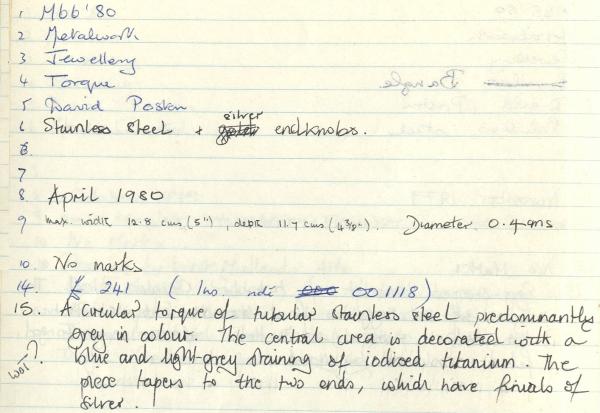 1 Mbb '80
2 Metalwork
3 Jewellery
4 Torque Bangle
5 David Poston
6 Stainless steel + silver endknobs.
8.
7
8 April 1980
9 max. width 12.8 cms (5"), depth 11.7 cms (4⅗"). Diameter 0.4 cms
10 No marks
14. £ 241 (Inv. 001118)
15. A circular torque of tubular stainless steel predominantly
grey in colour. The central area is decorated with a
blue and light-grey staining of iodised titanium. The
wot? piece tapers to the two ends, which have finials of
silver.